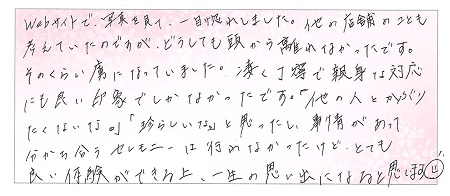 Webサイトで、写真を見て、一目惚れしました。他の店舗のことも
考えていたのですが、どうしても頭から離れなかったです。
そのくらい虜になっていました。凄く丁寧で親身な対応
にも良い印象でしかなかったです。「他の人とかぶり
たくないな。」「珍らしいな」と思ったし、事情があって
分かち合うセレモニーは行わなかったけど、とても
良い体験ができる上、一生の思い出になると思います